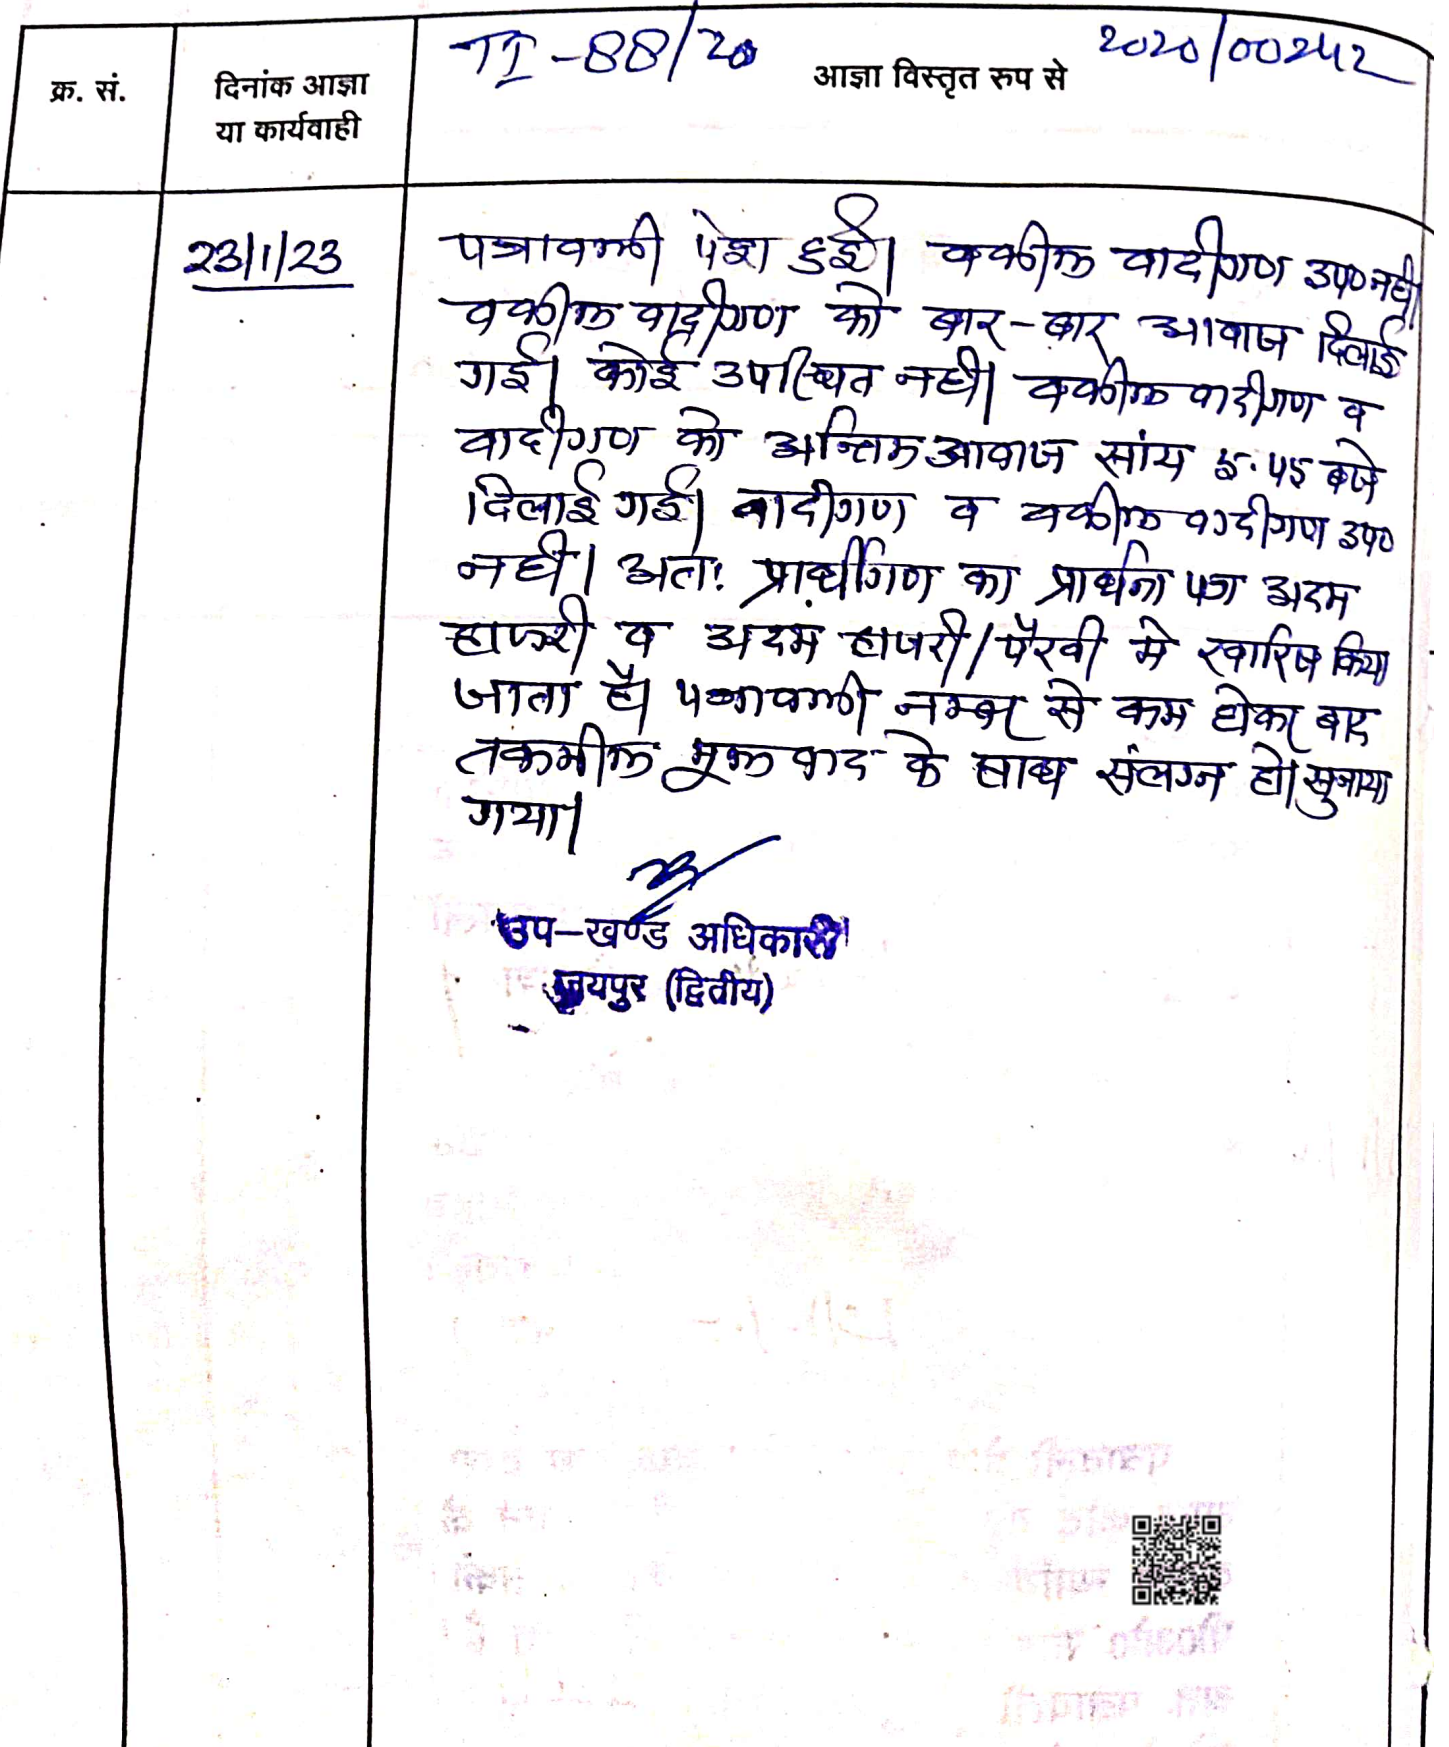 TI-88/20 2020/00242
क्र. सं. दिनांक आज्ञा या कार्यवाही आज्ञा विस्तृत रुप से
23/1/23
पत्रावली पेश हुई। वकील वादीगण उप० नही।
वकील वादीगण को बार-बार आवाज दिलाई
गई। कोई उपस्थित नही। वकील वादीगण व
वादीगण को अन्तिम आवाज सांय 5.45 बजे
दिलाई गई। वादीगण व वकील वादीगण उप०
नही। अतः प्रार्थीगण का प्रार्थना पत्र अदम
हाजरी व अदम हाजरी/पैरवी मे खारिज किया
जाता है। पत्रावली नम्बर से कम होकर बाद
तकमील मूल वाद के साथ संलग्न हो। सुनाया
गया।
उप-खण्ड अधिकारी
जयपुर (द्वितीय)